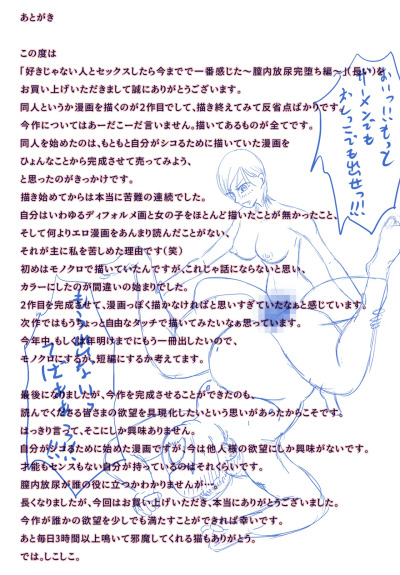 あとがき
この度は
「好きじゃない人とセックスしたら今までで一番感じた～膣内放尿完堕ち編～」(長い)を
お買い上げいただきまして誠にありがとうございます。
同人というか漫画を描くのが2作目でして、描き終えてみて反省点ばかりです。
今作についてはあーだこーだ言いません。描いてあるものが全てです。
同人を始めたのは、もともと自分がシコるために描いていた漫画を
ひょんなことから完成させて売ってみよう、
と思ったのがきっかけです。
描き始めてからは本当に苦難の連続でした。
自分はいわゆるディフォルメ画と女の子をほとんど描いたことが無かったこと、
そして何よりエロ漫画をあんまり読んだことがない、
それが主に私を苦しめた理由です(笑)
初めはモノクロで描いていたんですが、これじゃ話にならないと思い、
カラーにしたのが間違いの始まりでした。
2作目を完成させて、漫画っぽく描かなければと思いすぎていたなぁと感じています。
次作ではもうちょっと自由なタッチで描いてみたいなぁ思っています。
今年中、もしくは年明けまでにもう一冊出したいので、
モノクロにするか、短編にするか考えてます。
最後になりましたが、今作を完成させることができたのも、
読んでくださる皆さまの欲望を具現化したいという思いがあったからこそです。
はっきり言って、そこにしか興味ありません。
自分がシコるために始めた漫画ですが、今は他人様の欲望にしか興味がないです。
才能もセンスもない自分が持っているのはそれくらいです。
膣内放尿が誰の役に立つかわかりませんが…。
長くなりましたが、今回はお買い上げいただき、本当にありがとうございました。
今作が誰かの欲望を少しでも満たすことができれば幸いです。
あと毎日3時間以上鳴いて邪魔してくれる猫もありがとう。
では。しこしこ。
おいっ!!もっと
ザーメンでも
おしっこでも出せっ!!!
もう出ないっ